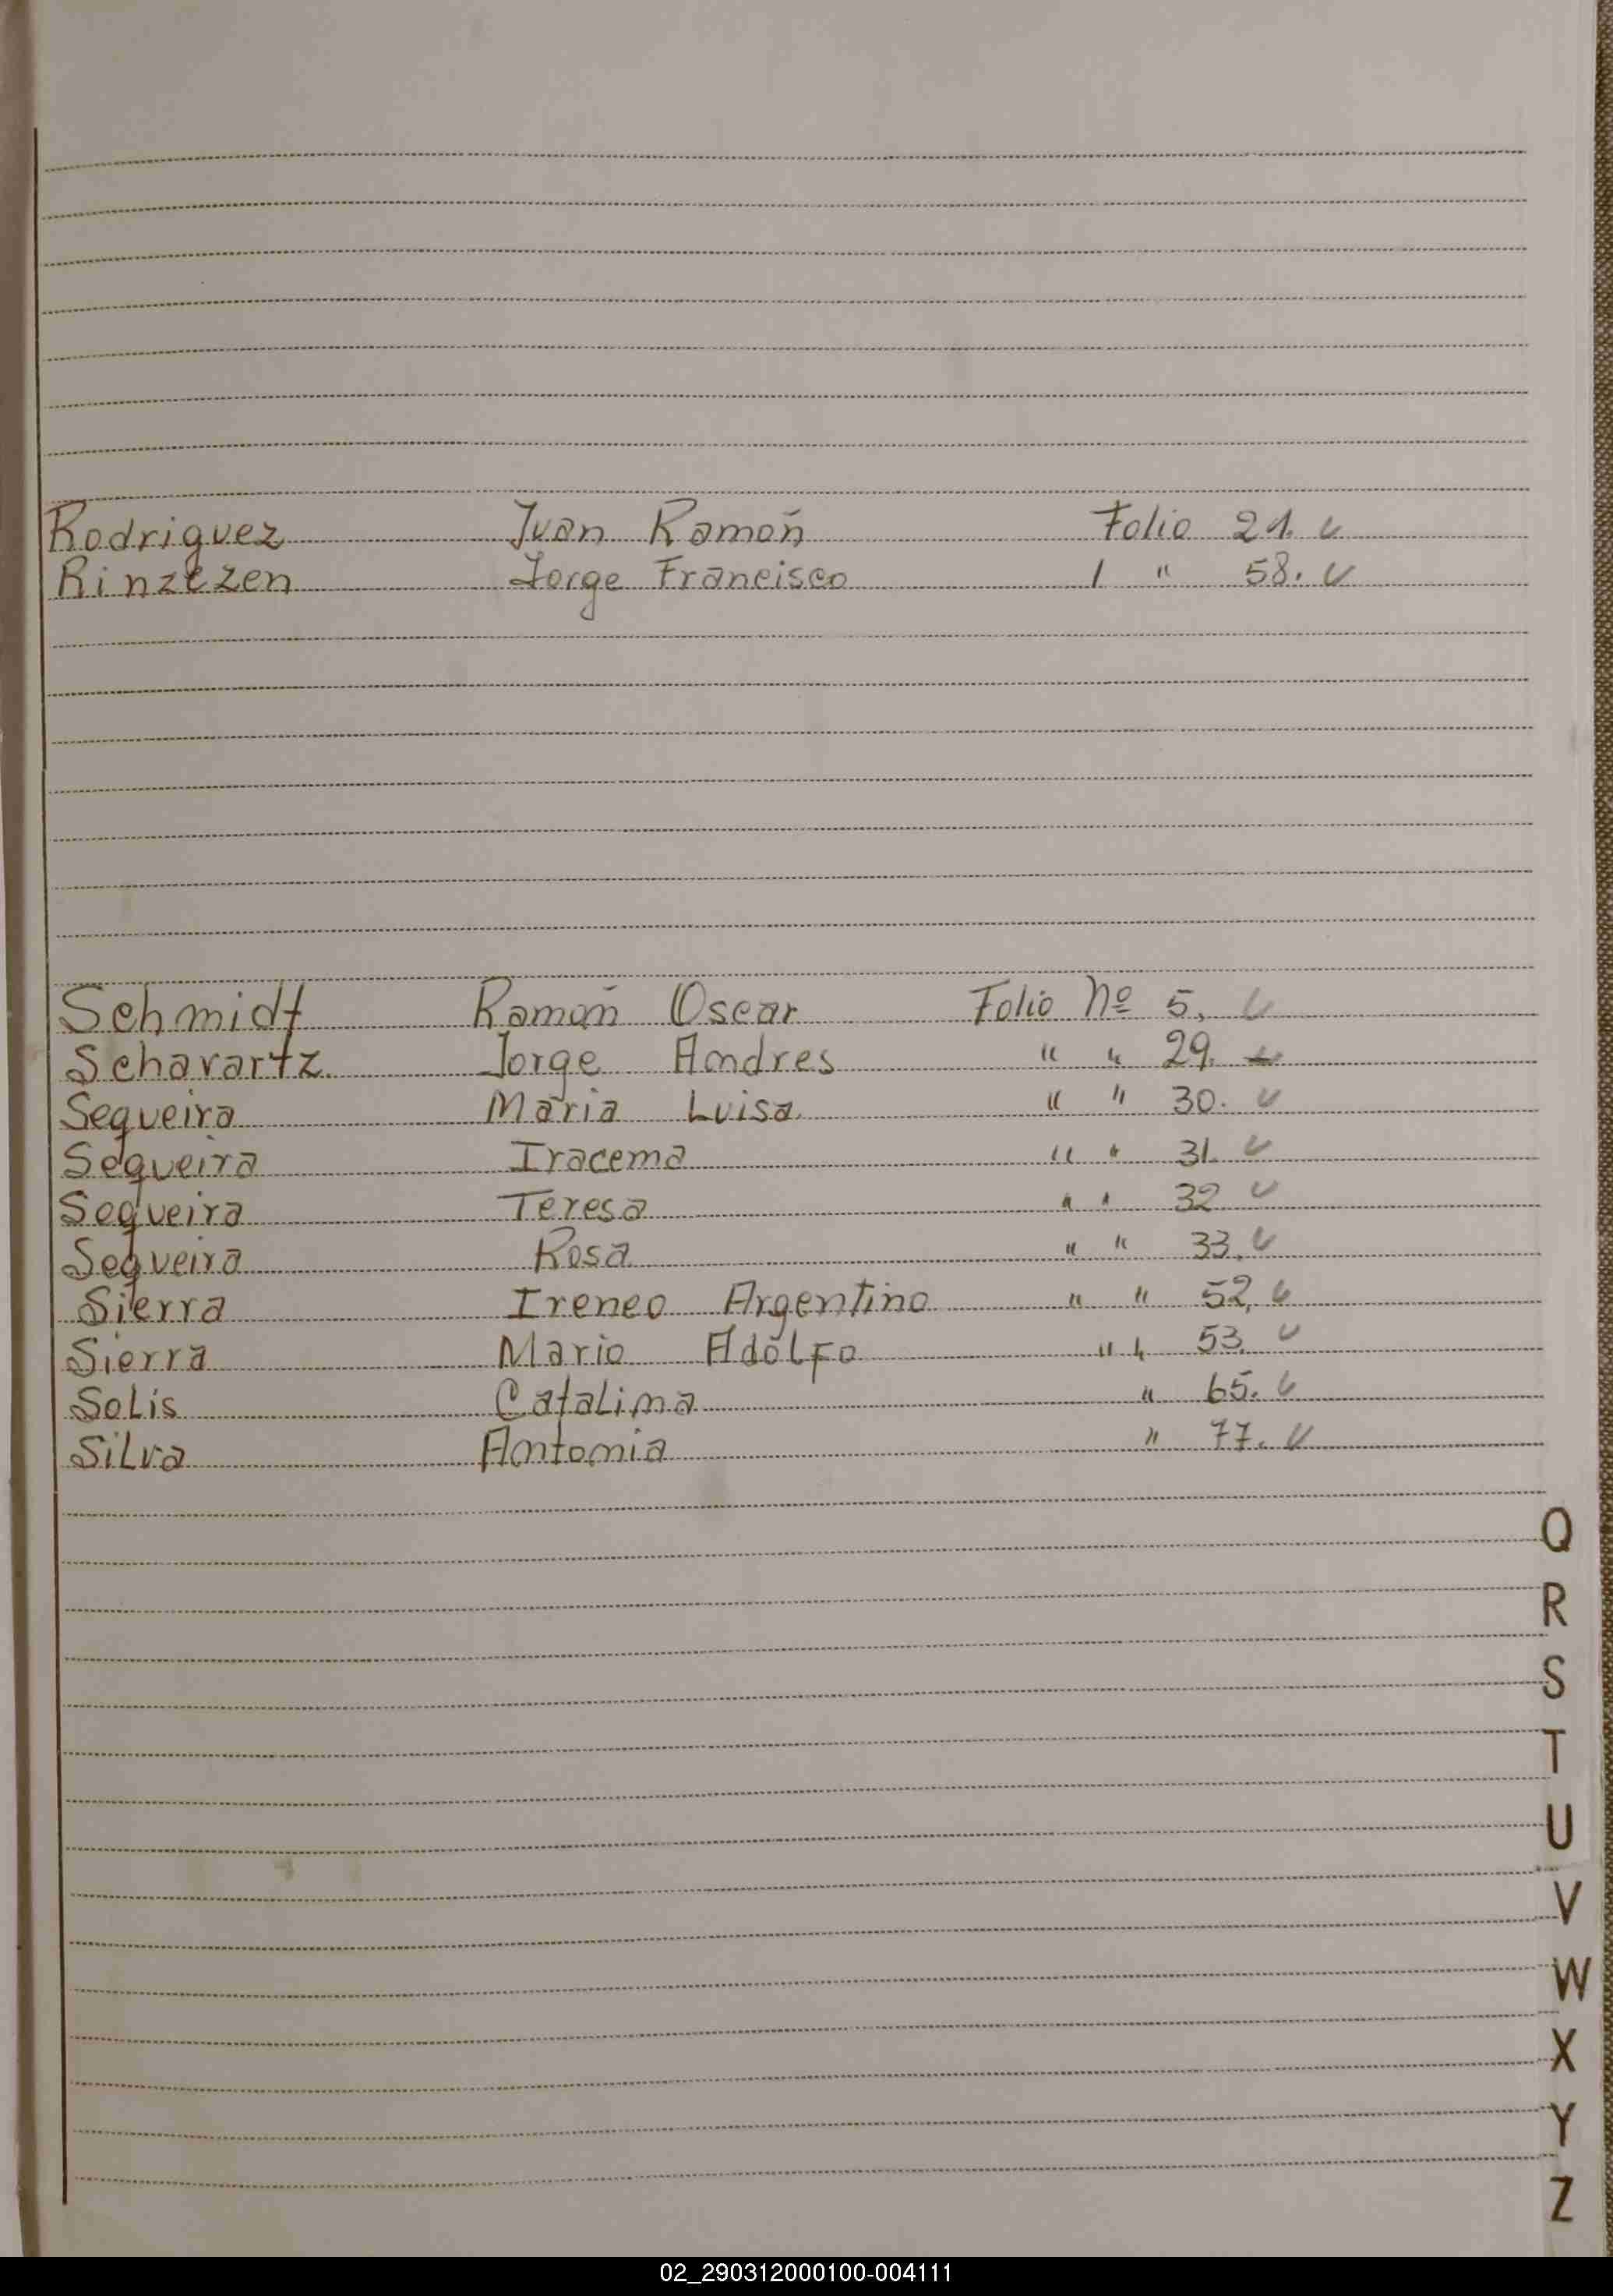 Rodriguez Juan Ramoñ Folio 21.
Jorge Francisco 1 " 58.
Schmidt Ramoñ Oscar Folio Nº 5.
Schavartz. Jorge Andres " " 29.
Sequeira Maria Luisa. " " 30.
Sequeira Iracema " " 31.
Sequeira Teresa " " 32
Sequeira Rosa " " 33.
Sierra Ireneo Argentino " " 52.
Sierra Mario Adolfo " " 53.
Solis Catalina " 65.
Silva Antonia " 77.
Q
R
S
T
U
V
W
X
Y
Z
02_290312000100-004111